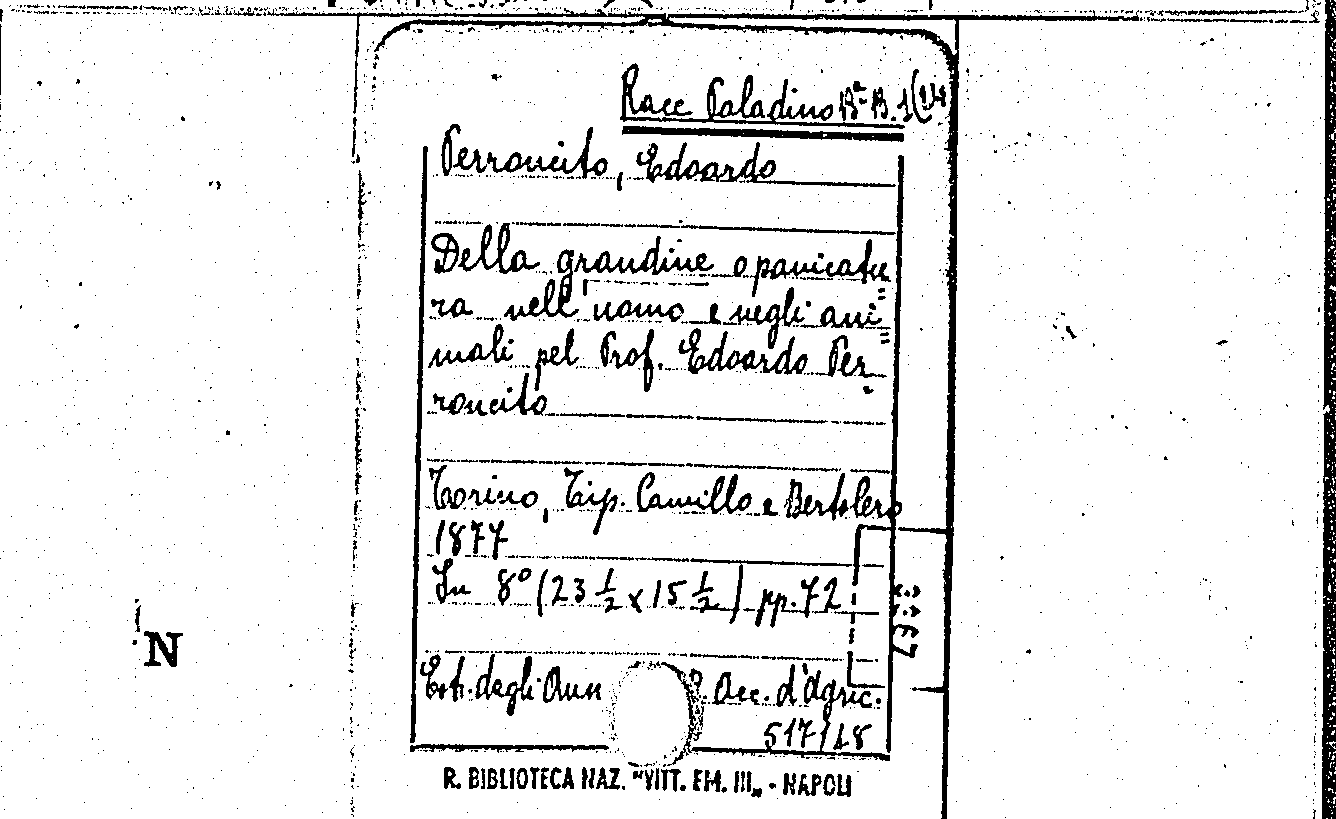 Racc Paladino Bª B. 1(24
Perroncito, Edoardo
Della grandine o panicatu=
ra nell'uomo e negli ani=
mali pel Prof. Edoardo Per=
roncito
Torino, Tip. Camillo e Bertolero
1877
In 8° (23 ½ x 15 ½) pp. 72
Estr. dagli Ann . Acc. d'Agric.
517118
R. BIBLIOTECA NAZ. "VITT. EM. III„ - NAPOLI
N